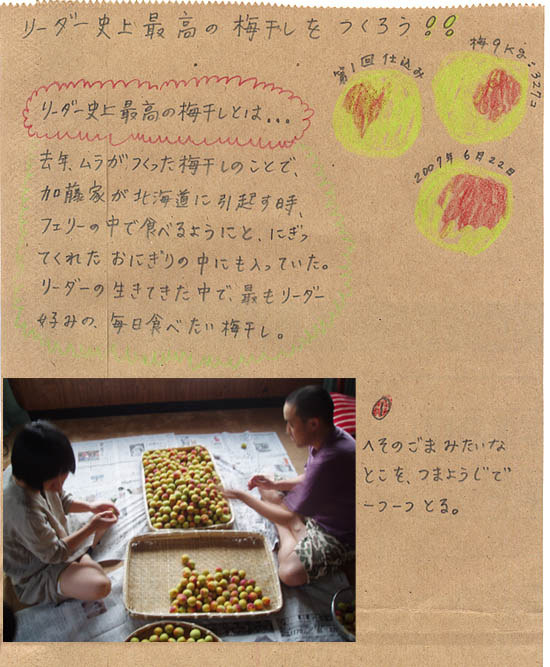 リーダー史上最高の梅干しをつくろう!!
第1回仕込み
梅9kg:327コ
2007年6月22日
リーダー史上最高の梅干しとは...
去年、ムラがつくった梅干しのことで、
加藤家が北海道に引起す時、
フェリーの中で食べるようにと、にぎっ
てくれたおにぎりの中にも入っていた。
リーダーの生きてきた中で、最もリーダー
好みの、毎日食べたい梅干し。
へそのごまみたいな
とこを、つまようじで
一つ一つとる。